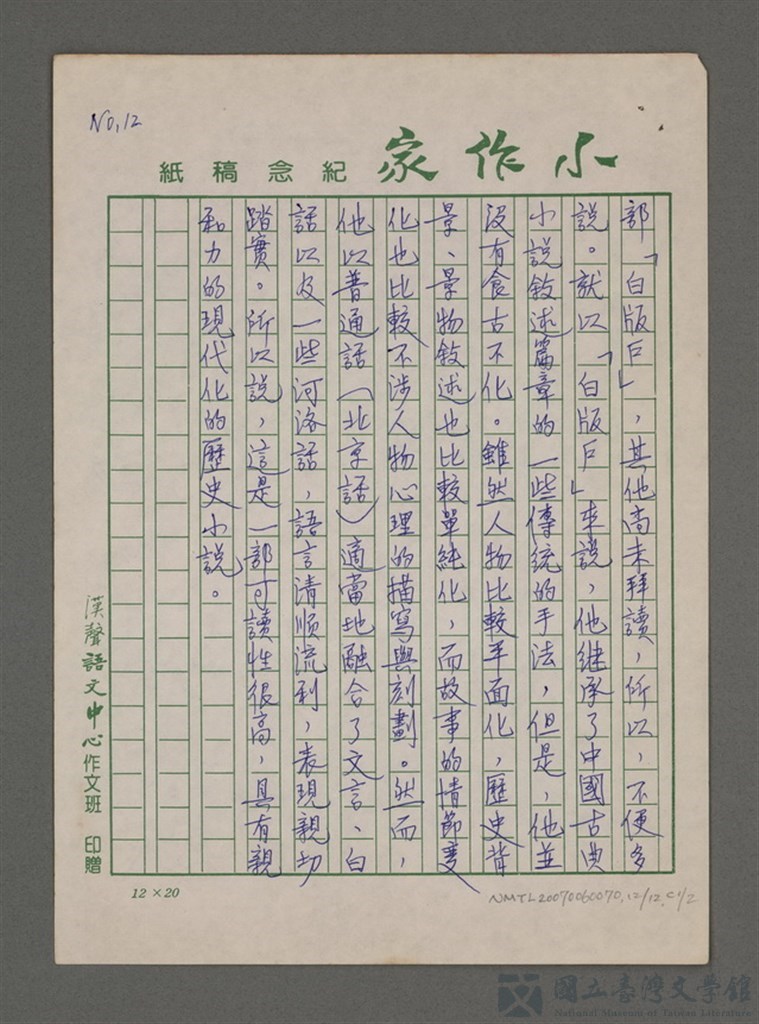 No,12
小作家
紀念稿紙
部「白版戶」，其他尚未拜讀，所以，不便多
說。就以「白版戶」來說，他繼承了中國古典
小說敘述篇章的一些傳統的手法，但是，他並
沒有食古不化。雖然人物比較平面化，歷史背
景、景物敘述也比較單純化，而故事的情節變
化也比較不涉人物心理的描寫與刻劃。然而，
他以普通話（北京話）適當地融合了文言、白
話以及一些河洛話，語言清順流利，表現親切
踏實。所以說，這是一部可讀性很高，具有親
和力的現代化的歷史小說。
漢聲語文中心作文班 印贈
12×20
NMTL20070060070,12/12,C1/2
國立臺灣文學館
National Museum of Taiwan Literature